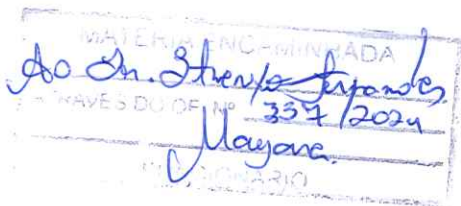 MATÉRIA ENCAMINHADA
Ao Sr. Fernandes
ATRAVÉS DO OF. Nº 337/2024
Mayara.
FUNCIONÁRIO